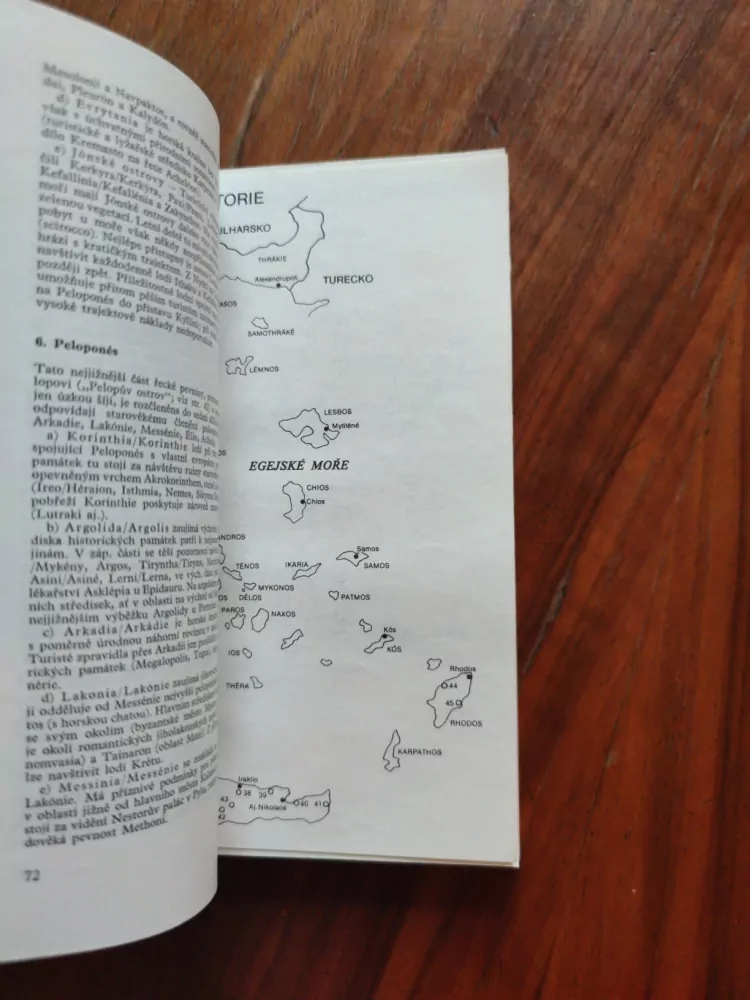 Mesolonji a Navpaktos, a
dai, Pleurón a Kalydón.
d) Evrytania je horská krajina
však v úchvatnými přírodními
(turistické a lyžařské středisko
dílo Kremasto na řece
e) Jónské ostrovy –
čili Kerkyra/Kerkýra, Paxi/Paxos,
Kefallinia/Kefallénia a Zakynthos
moři mají Jónské ostrovy
zelenou vegetaci. Letní deště tu
pobyt u moře však někdy
(scirocco). Nejlépe přístupný je
hrází s kratičkým trajektem. Z
navštívit každodenně lodí Ithaku a
později zpět. Příležitostné lodní spojení
umožňuje přitom pěším turistům
na Peloponés do přístavu Kyllini; při
vysoké trajektové náklady
6. Peloponés
Tato nejjižnější část řecké pevniny,
lopovi („Pelopův ostrov“; viz str.
jen úzkou šíjí, je rozčleněna do
odpovídají starověkému členění
Arkadie, Lakónie, Messénie, Élis,
a) Korinthia/Korinthie leží při
spojující Peloponés s vlastní
památek tu stojí za návštěvu ruiny
opevněným vrchem Akrokorinthem,
(Ireo/Héraion, Isthmia, Nemea,
pobřeží Korinthie poskytuje zároveň
(Lutraki aj.).
b) Argolida/Argolis zaujímá
diska historických památek patří k
jinám. V záp. části se těší pozornosti
/Mykény, Argos, Tiryntha/Tiryns,
Asini/Asiné, Lerni/Lerna, ve vých. části
lékařství Asklépia u Epidauru. Na
ních středisek, ať v oblasti na východ
nejjižnějším výběžku Argolidy u
c) Arkadia/Arkádie je horská
s poměrně úrodnou náhorní rovinou v
Turisté zpravidla přes Arkadii jen
rických památek (Megalopolis,
nérie.
d) Lakonia/Lakónie zaujímá
ji odděluje od Messénie nejvyšší
tos (s horskou chatou). Hlavním
se svým okolím (byzantské město
je okolí romantických jiholakonských
nemvasia) a Tainaron (oblast Mani).
lze navštívit lodí Krétu.
e) Messinia/Messénie se
Lakónie. Má příznivé podmínky pro
v oblasti jižně od hlavního města
stojí za vidění Nestorův palác v Pylu,
dověká pevnost Methoni.
72
TORIE
ULHARSKO
THRÁKIE
Alexandrupos
TURECKO
ASOS
SAMOTHRÁKÉ
LÉMNOS
LESBOS
Mytiléné
EGEJSKÉ MOŘE
CHIOS
Chios
ANDROS
Samos
TÉNOS
IKARIA
SAMOS
MYKONOS
OS
DÉLOS
PATMOS
PAROS
NAXOS
Kós
IOS
KÓS
Rhodos
THÉRA
44
45
RHODOS
KARPATHOS
Iraklio
38
39
43
Aj. Nikolaos
40
41
42